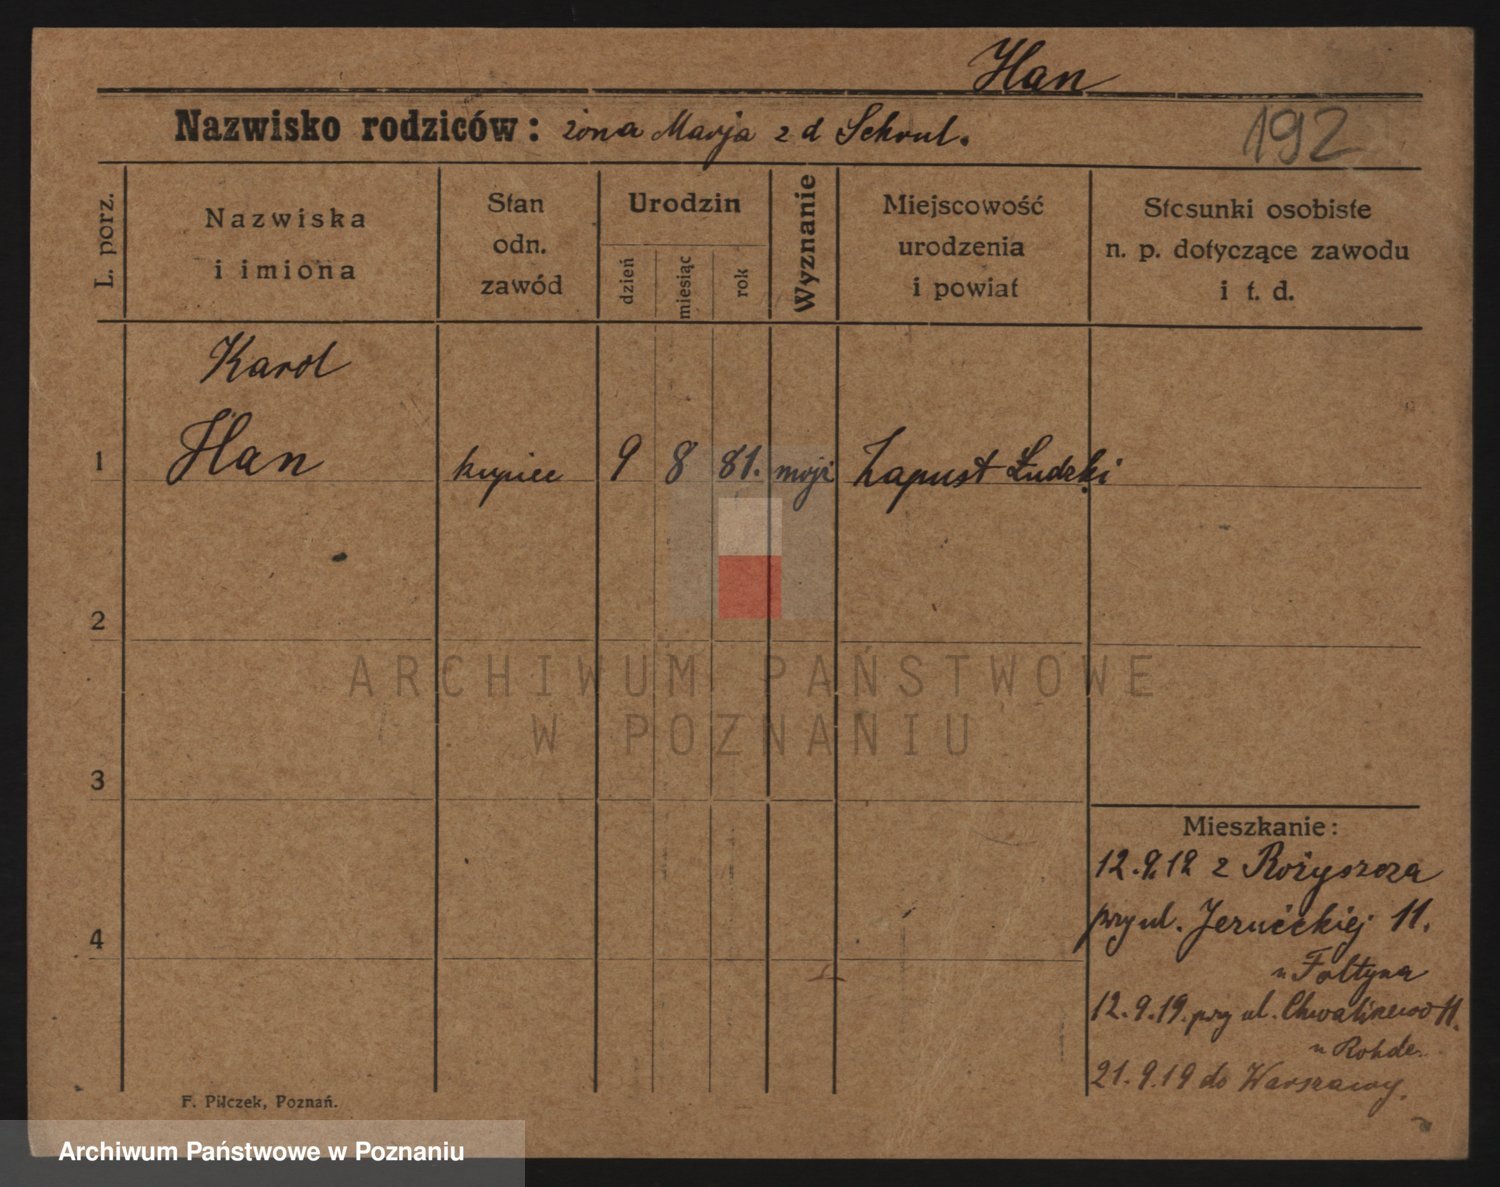 Han
Nazwisko rodziców: żona Marja z d Schrul.
192
L. porz.
Nazwiska
i imiona
Stan
odn.
zawód
Urodzin
dzień
miesiąc
rok
Wyznanie
Miejscowość
urodzenia
i powiat
Stosunki osobiste
n. p. dotyczące zawodu
i t. d.
Karol
1 Han kupiec 9 8 81. mojż Zapust Łudzki
2
3
4
Mieszkanie:
12.9.19 z Rożyszcza
przy ul. 11.
u Foltyna
12.9.19. przy ul. 11.
u Rohde.
21.9.19 do Warszawy.
F. Pilczek, Poznań.
ARCHIWUM PAŃSTWOWE
W POZNANIU
Archiwum Państwowe w Poznaniu